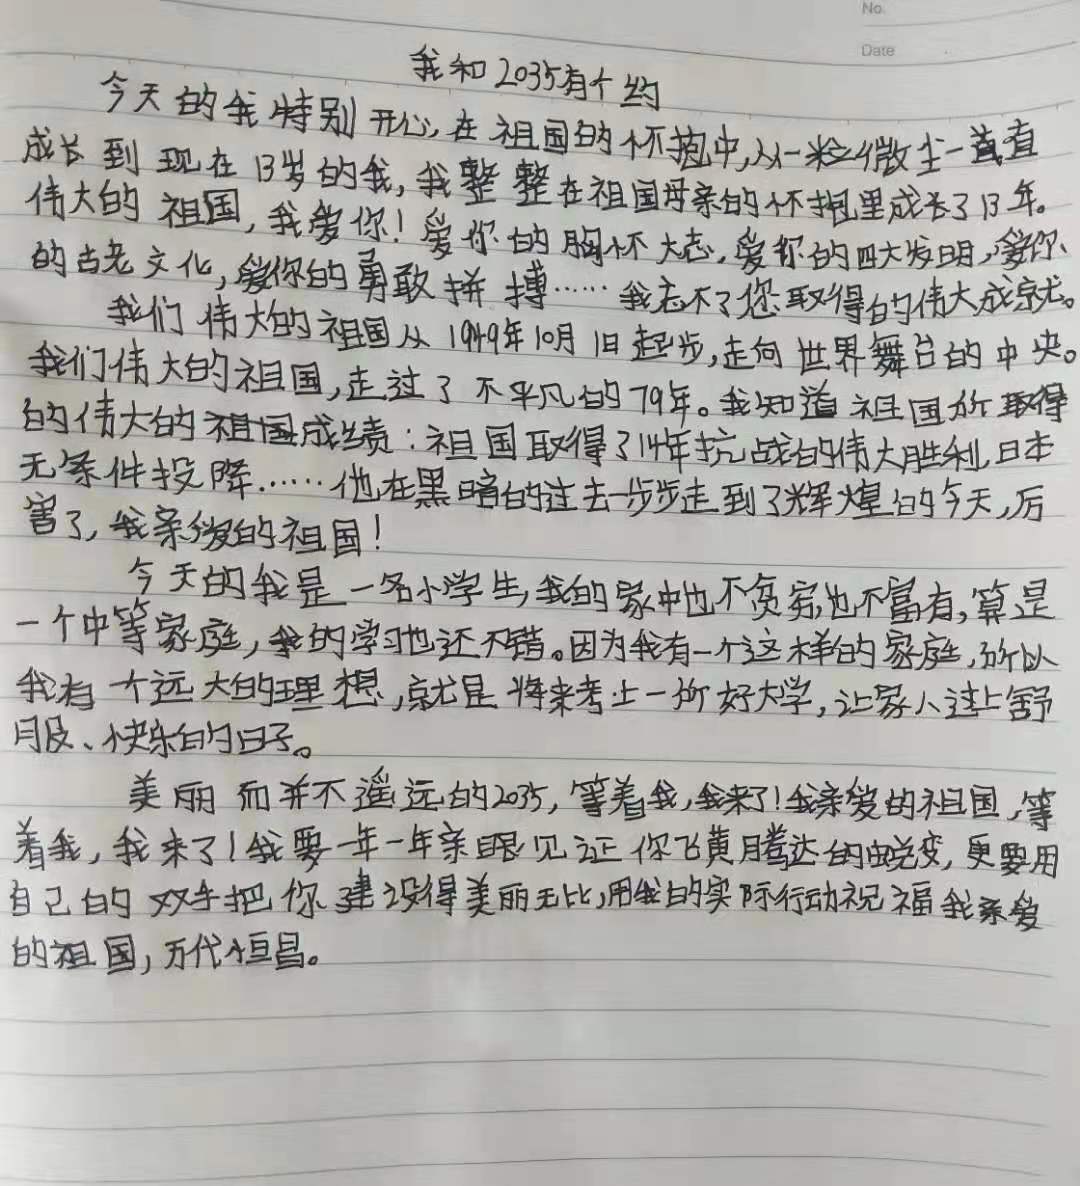 No.
Date
我和2035有个约
今天的我特别开心,在祖国的怀抱中,从一粒微尘一直
成长到现在13岁的我,我整整在祖国母亲的怀抱里成长了13年。
伟大的祖国,我爱你!爱你的胸怀大志,爱你的四大发明,爱你
的古老文化,爱你的勇敢拼搏……我忘不了您取得的伟大成就。
我们伟大的祖国从1949年10月1日起步,走向世界舞台的中央。
我们伟大的祖国,走过了不平凡的79年。我知道祖国所取得
的伟大的祖国成绩:祖国取得了14年抗战的伟大胜利,日本
无条件投降……他在黑暗的过去一步步走到了辉煌的今天,厉
害了,我亲爱的祖国!
今天的我是一名小学生,我的家中也不贫穷也不富有,算是
一个中等家庭,我的学习也还不错。因为我有一个这样的家庭,所以
我有一个远大的理想,就是将来考上一所好大学,让家人过上舒
服、快乐的日子。
美丽而并不遥远的2035,等着我,我来了!我亲爱的祖国,等
着我,我来了!我要一年一年亲眼见证你飞黄腾达的蜕变,更要用
自己的双手把你建设得美丽无比,用我的实际行动祝福我亲爱
的祖国,万代恒昌。